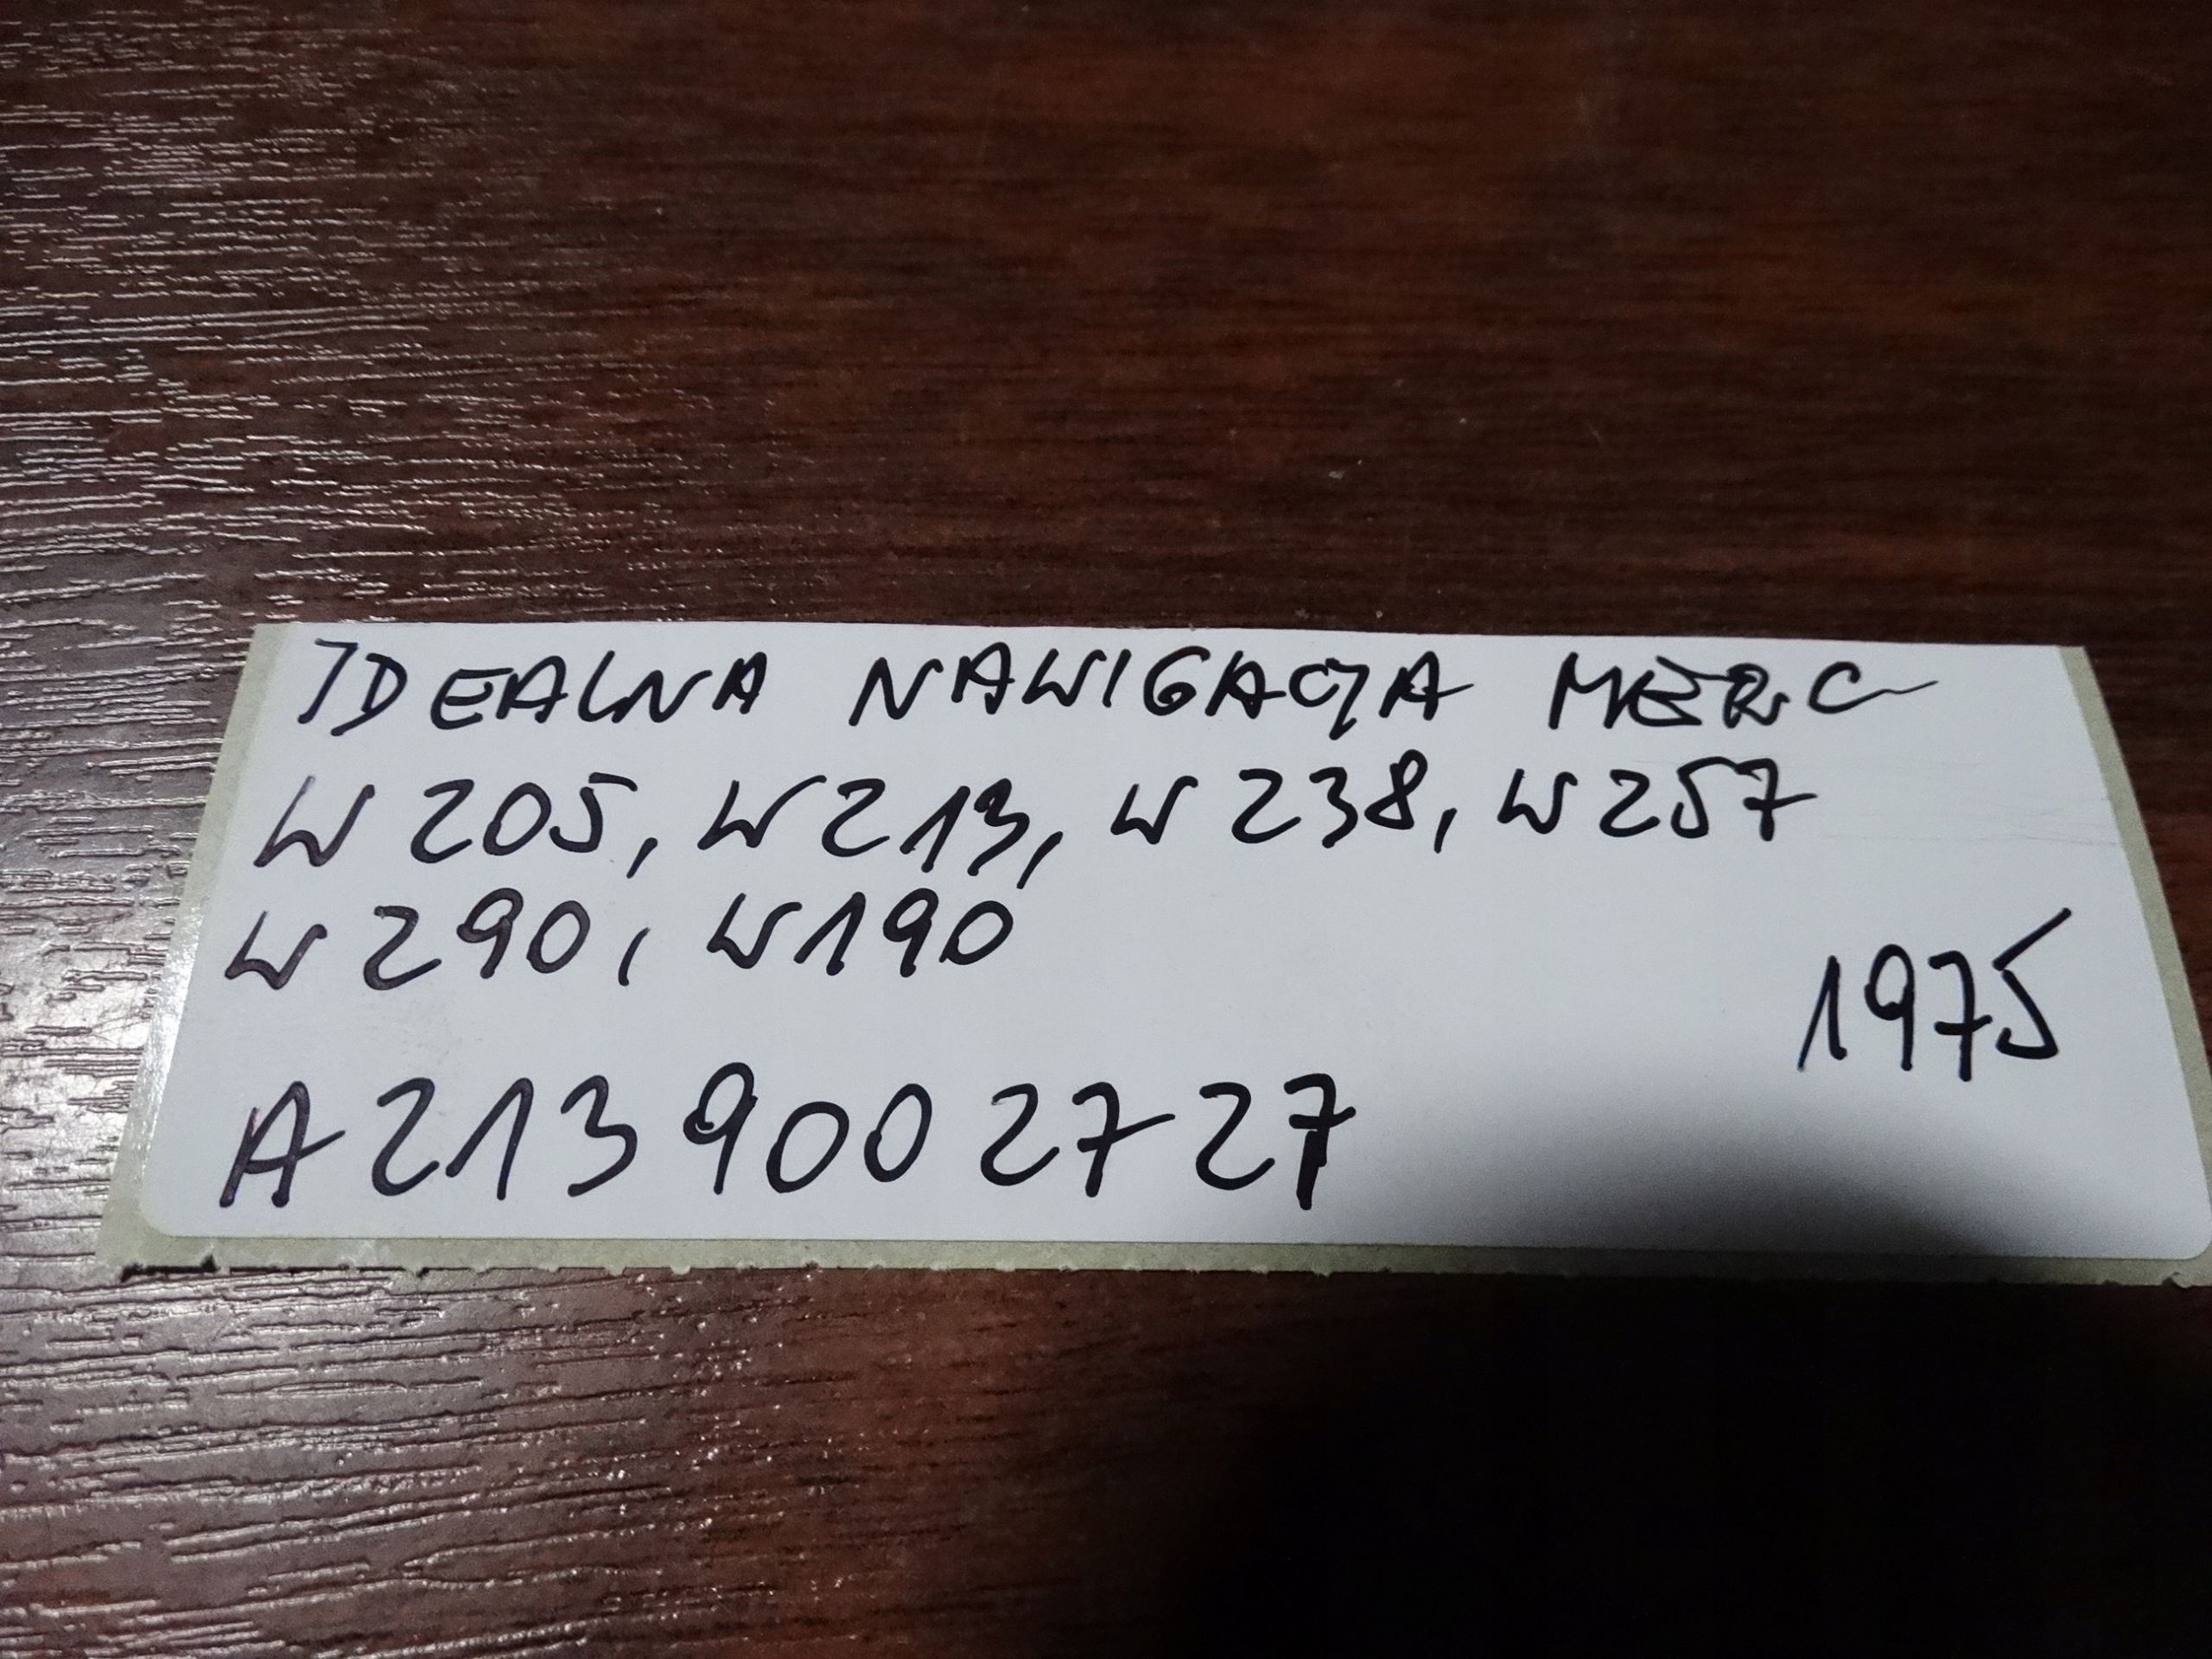 IDEALNA NAWIGACJA MERC
W205, W213, W238, W257
W290, W190
1975
A213 900 27 27